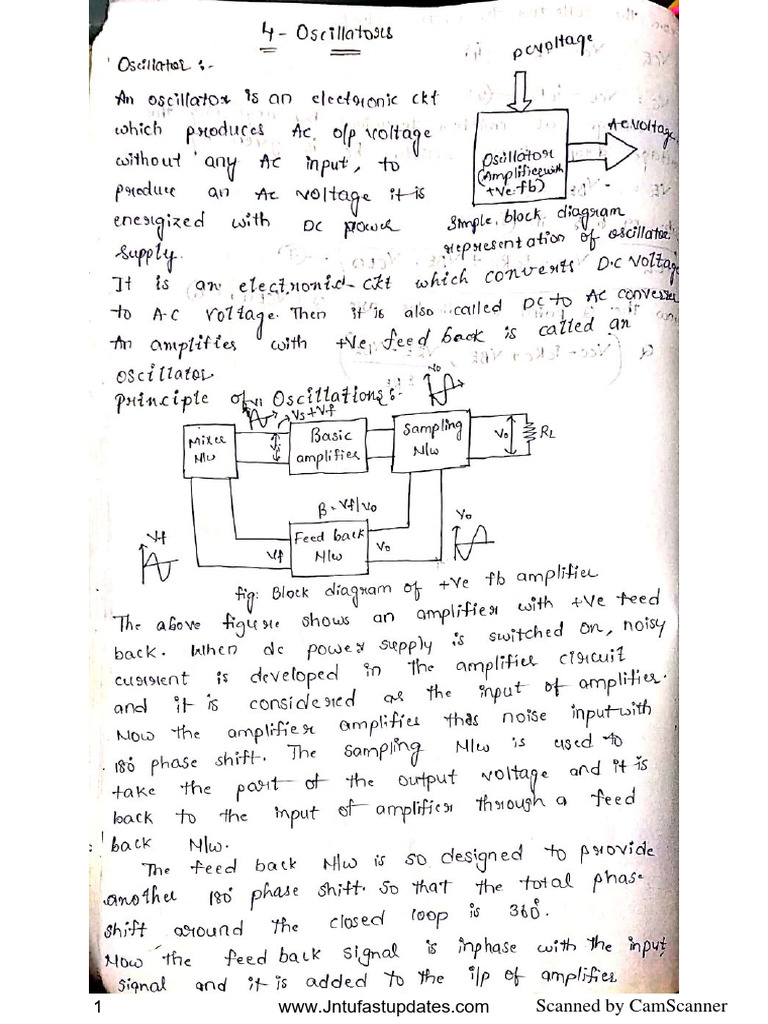 4 - Oscillators
Oscillator :-
An oscillator is an electronic ckt
which produces Ac o/p voltage
without any AC input, to
produce an Ac voltage it is
energized with DC power
supply.
DC voltage
Oscillator
(Amplifier with
+Ve fb)
A.C. voltage
Simple block diagram
representation of oscillator
It is an electronic ckt which converts D.C voltage
to A.C voltage. Then it is also called DC to AC converter
An amplifier with +Ve feed back is called an
oscillator
principle of Oscillations :-
Vs + Vf
Vo
Mixer
N/w
Vi
Basic
amplifier
Sampling
N/w
Vo
RL
β = Vf/Vo
Vf
Vf
Feed back
N/w
Vo
Vo
fig: Block diagram of +Ve fb amplifier
The above figure shows an amplifier with +Ve feed
back. When dc power supply is switched on, noisy
current is developed in the amplifier circuit
and it is considered as the input of amplifier.
Now the amplifier amplifies this noise input with
180° phase shift. The sampling N/w is used to
take the part of the output voltage and it is
back to the input of amplifier through a feed
back N/w.
The feed back N/w is so designed to provide
another 180° phase shift. so that the total phase
shift around the closed loop is 360°.
Now the feed back signal is inphase with the input
signal and it is added to the i/p of amplifier
1 www.Jntufastupdates.com Scanned by CamScanner